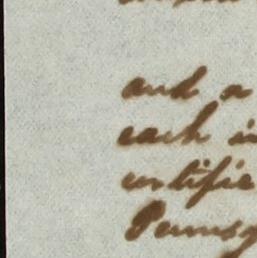 and a
each in
certifie
Pennsy